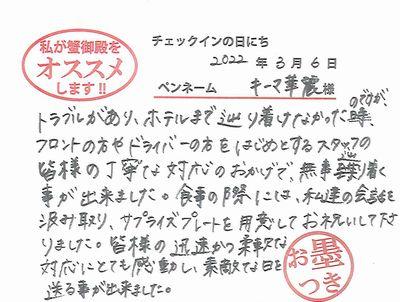 私が蟹御殿を
オススメ
します!!
チェックインの日にち
2022 年 3 月 6 日
ペンネーム キーマ華麗 様
トラブルがあり、ホテルまで辿り着けなかったのですが、
フロントの方やドライバーの方をはじめとするスタッフの
皆様の丁寧な対応のおかげで、無事辿り着く
事が出来ました。食事の際には、私達の会話を
汲み取り、サプライズプレートを用意してお祝いして下さ
りました。皆様の迅速かつ柔軟な
対応にとても感動し、素敵な日を
送る事が出来ました。
お墨
つき